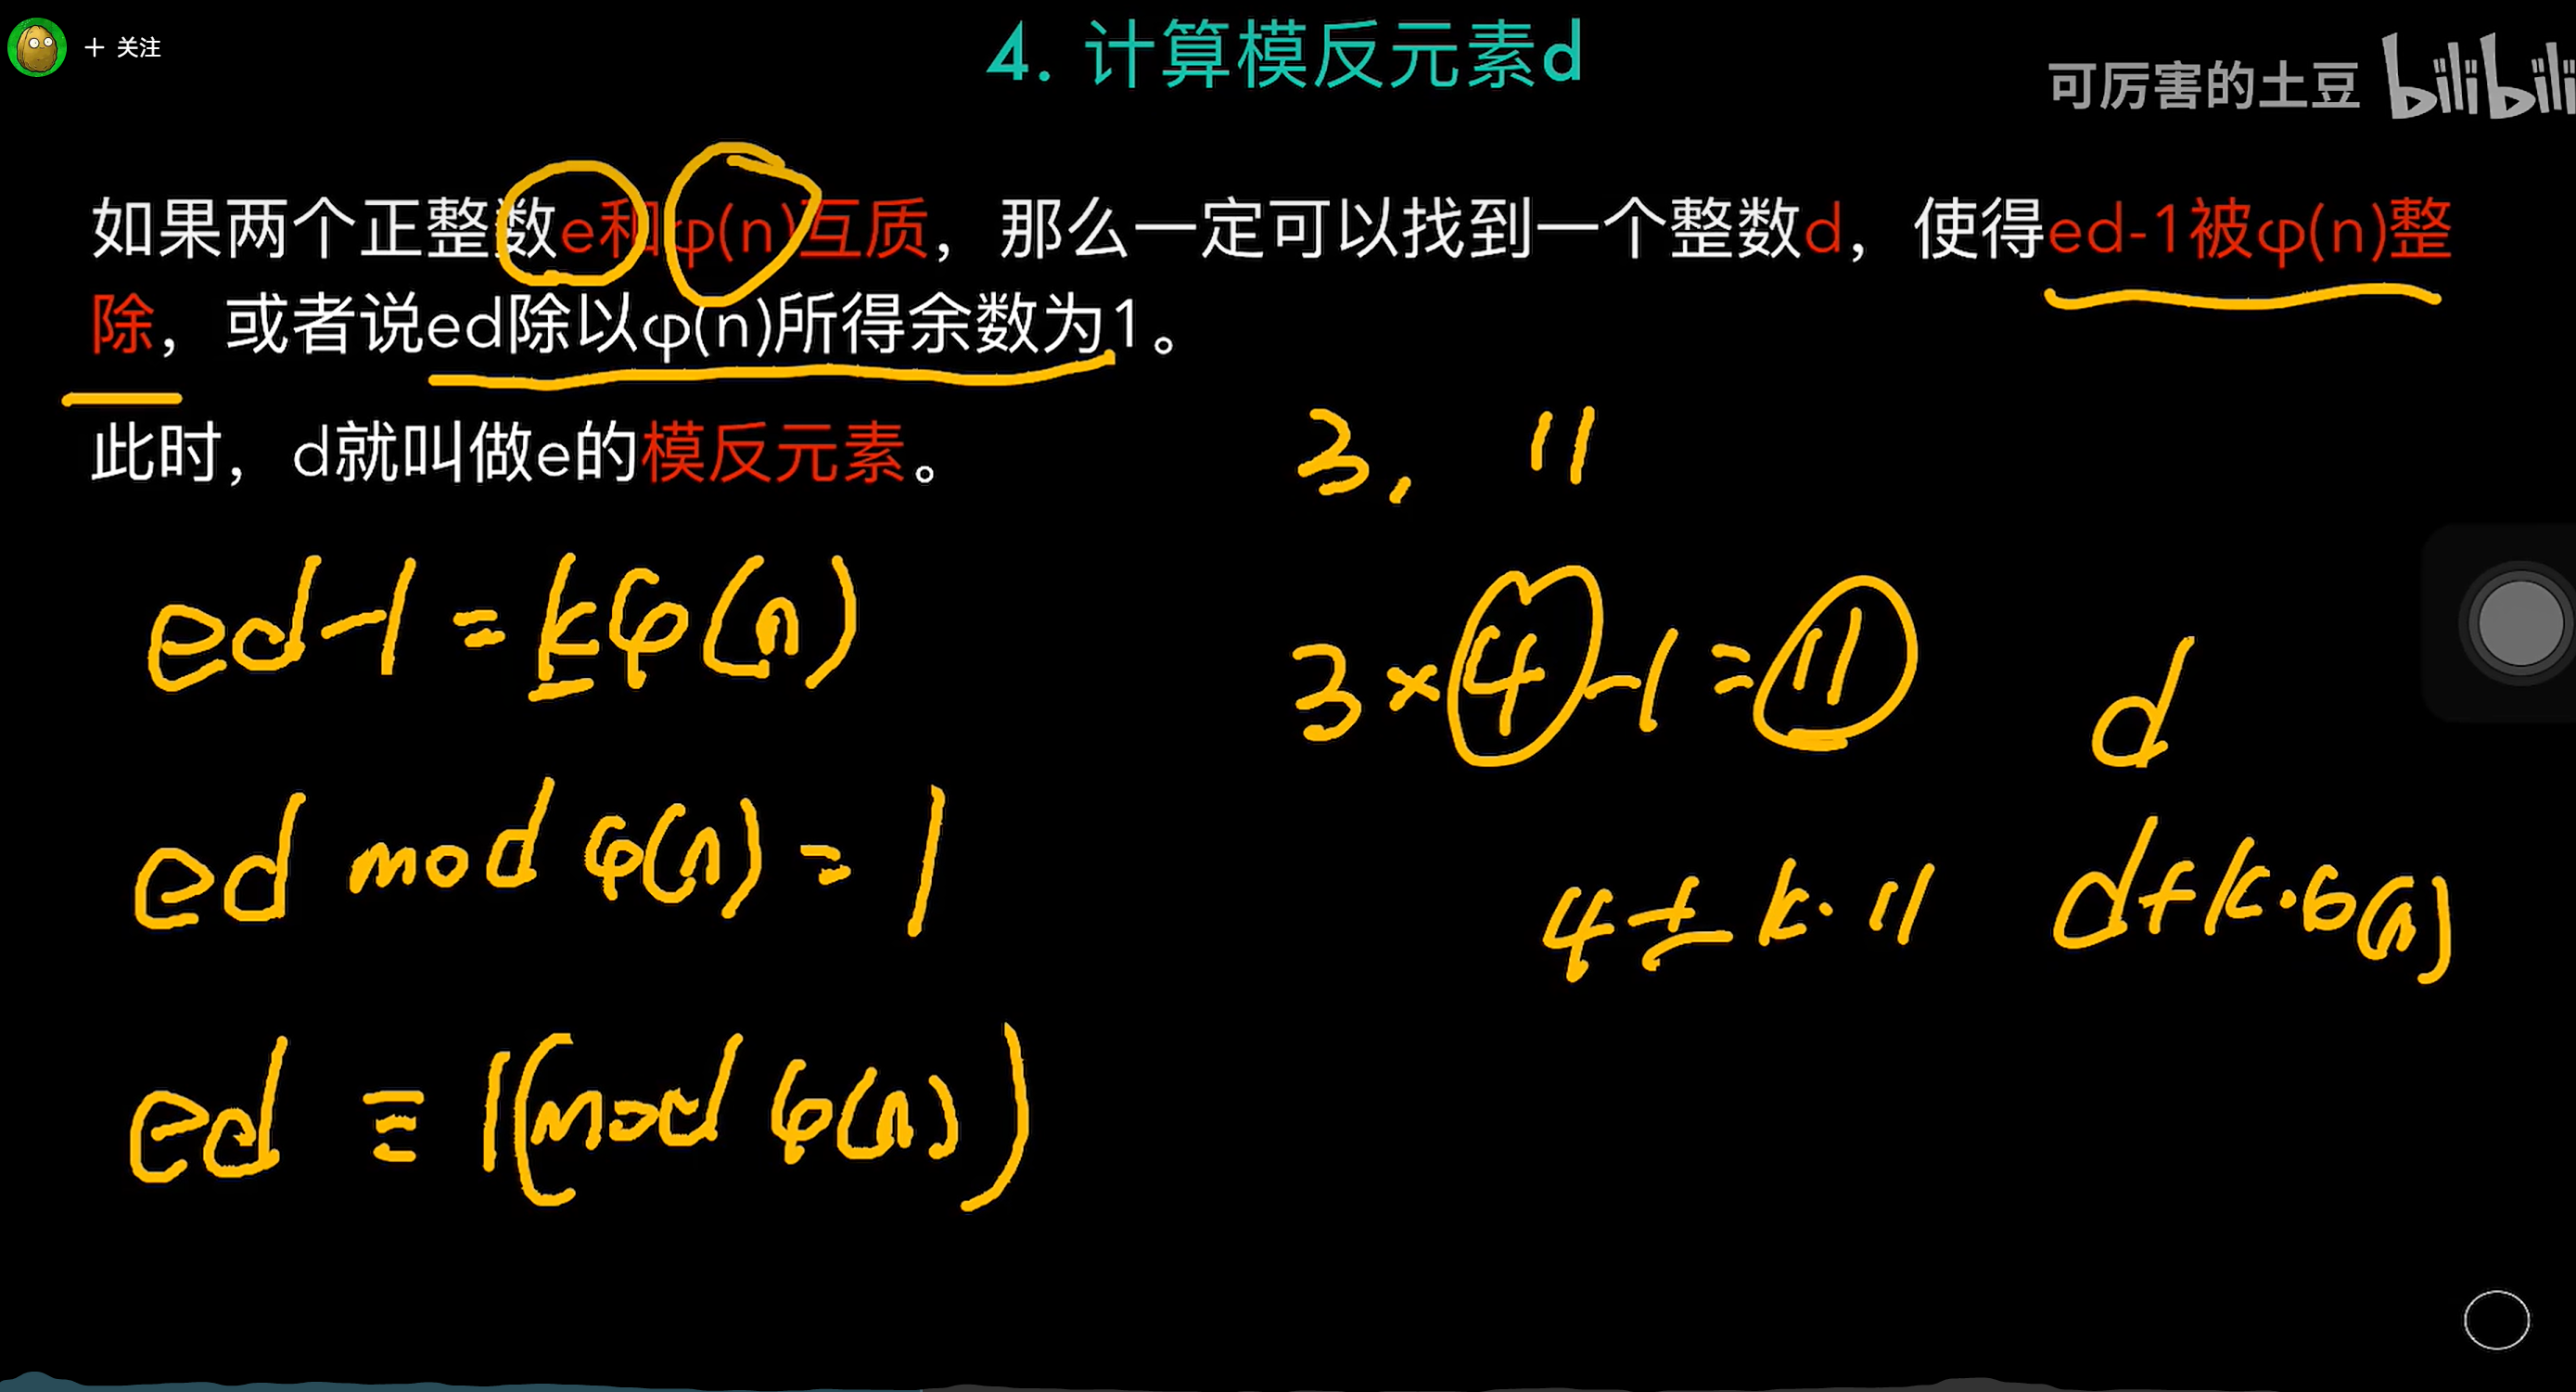 + 关注
4. 计算模反元素d
可厉害的土豆 bilibili
如果两个正整数e和φ(n)互质，那么一定可以找到一个整数d，使得ed-1被φ(n)整
除，或者说ed除以φ(n)所得余数为1。
此时，d就叫做e的模反元素。
3, 11
ed-1=kφ(n)
3×4-1=11
d
ed mod φ(n)=1
4±k·11
d+k·φ(n)
ed≡1(mod φ(n))